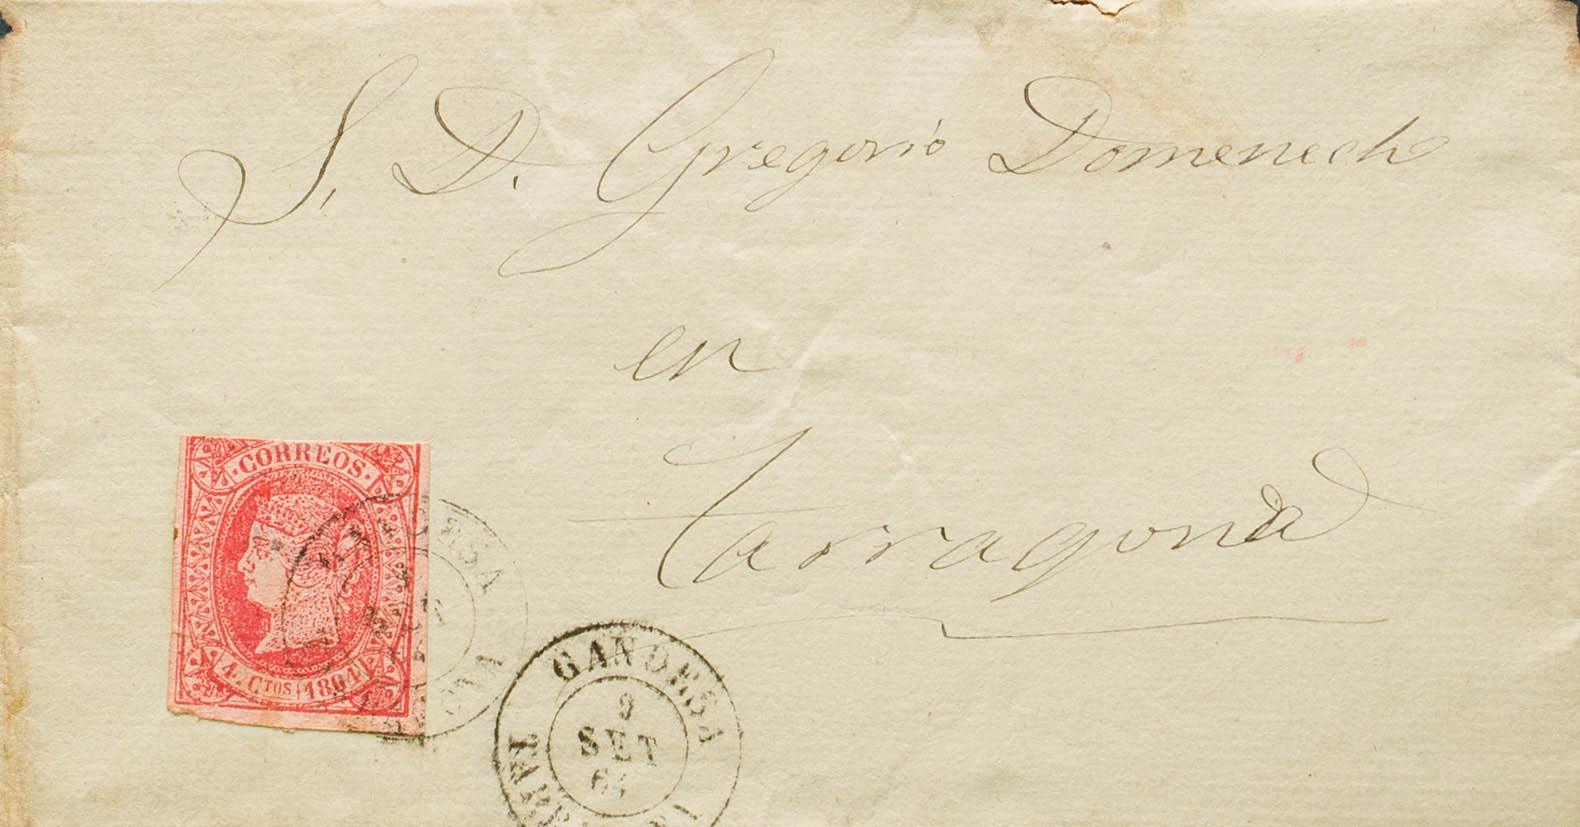 S. D. Gregorio Domenech
en
Tarragona
CORREOS.
4. CTOS 1864
GANDESA
9
SET
64